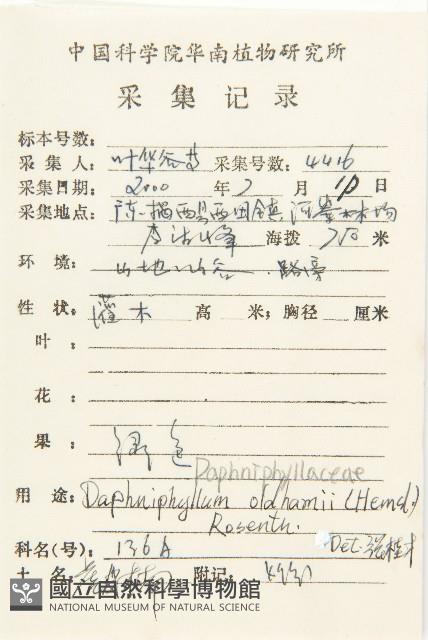 中国科学院华南植物研究所
采集记录
标本号数:
采集人: 叶华谷 采集号数: 4416
采集日期: 2000 年 7 月 10 日
采集地点: 揭西县西田鎮 河輋林场
李 峰 海拨 750 米
环境: 山地山谷.路旁
性状: 灌木 高 米; 胸径 厘米
叶:
花:
果: 绿色
Daphniphyllaceae
用途: Daphniphyllum oldhamii (Hemsl.)
Rosenth.
科名(号): 136A Det.
土名: 附记:
國立自然科學博物館
NATIONAL MUSEUM OF NATURAL SCIENCE